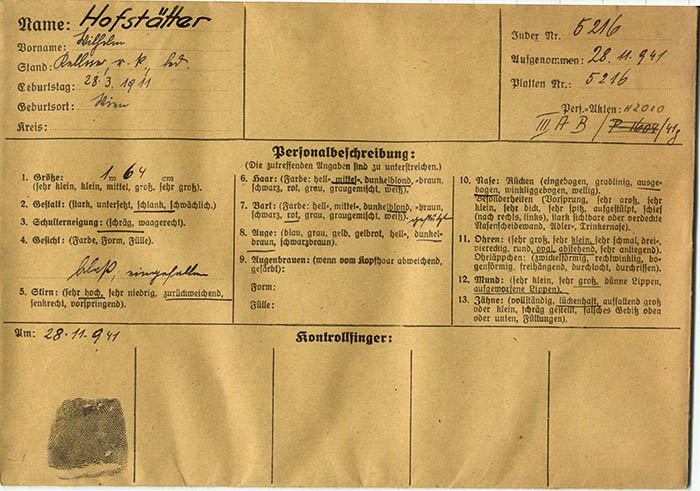 Name: Hofstätter
Vorname: Wilhelm
Stand: Kellner, r. k., led.
Geburtstag: 28.3.1911
Geburtsort: Wien
Kreis:
Index Nr. 5216
Aufgenommen: 28.11.941
Platten Nr.: 5216
Pers.-Akten: H2010
III A B / P 1604/41g
Personalbeschreibung:
(Die zutreffenden Angaben sind zu unterstreichen.)
1. Größe: 1 m 64 cm
(sehr klein, klein, mittel, groß, sehr groß).
2. Gestalt: (stark, untersetzt, schlank, schwächlich.)
3. Schulterneigung: (schräg, waagerecht).
4. Gesicht: (Farbe, Form, Fülle).
blaß, eingefallen
5. Stirn: (sehr hoch, sehr niedrig, zurückweichend,
senkrecht, vorspringend).
6. Haar: (Farbe: hell-, mittel-, dunkelblond, -braun,
schwarz, rot, grau, graugemischt, weiß).
7. Bart: (Farbe: hell-, mittel-, dunkelblond, -braun,
schwarz, rot, grau, graugemischt, weiß).
8. Auge: (blau, grau, gelb, gelbrot, hell-, dunkel-
braun, schwarzbraun).
9. Augenbrauen: (wenn vom Kopfhaar abweichend,
gefärbt):
Form:
Fülle:
10. Nase: Rücken (eingebogen, gradlinig, ausge-
bogen, winkliggebogen, wellig).
Besonderheiten (Vorsprung, sehr groß, sehr
klein, sehr dick, sehr spitz, aufgestülpt, schief
(nach rechts, links), stark sichtbare oder verdeckte
Nasenscheidewand, Adler-, Trinkernase).
11. Ohren: (sehr groß, sehr klein, sehr schmal, drei-,
viereckig, rund, oval, abstehend, sehr anliegend).
Ohrläppchen: (zwickelförmig, rechtwinklig, bo-
genförmig, freihängend, durchlocht, durchrissen).
12. Mund: (sehr klein, sehr groß, dünne Lippen,
aufgeworfene Lippen).
13. Zähne: (vollständig, lückenhaft, auffallend groß
oder klein, schräg gestellt, falsches Gebiß oben
oder unten, Füllungen).
Am: 28.11.941
Kontrollfinger: